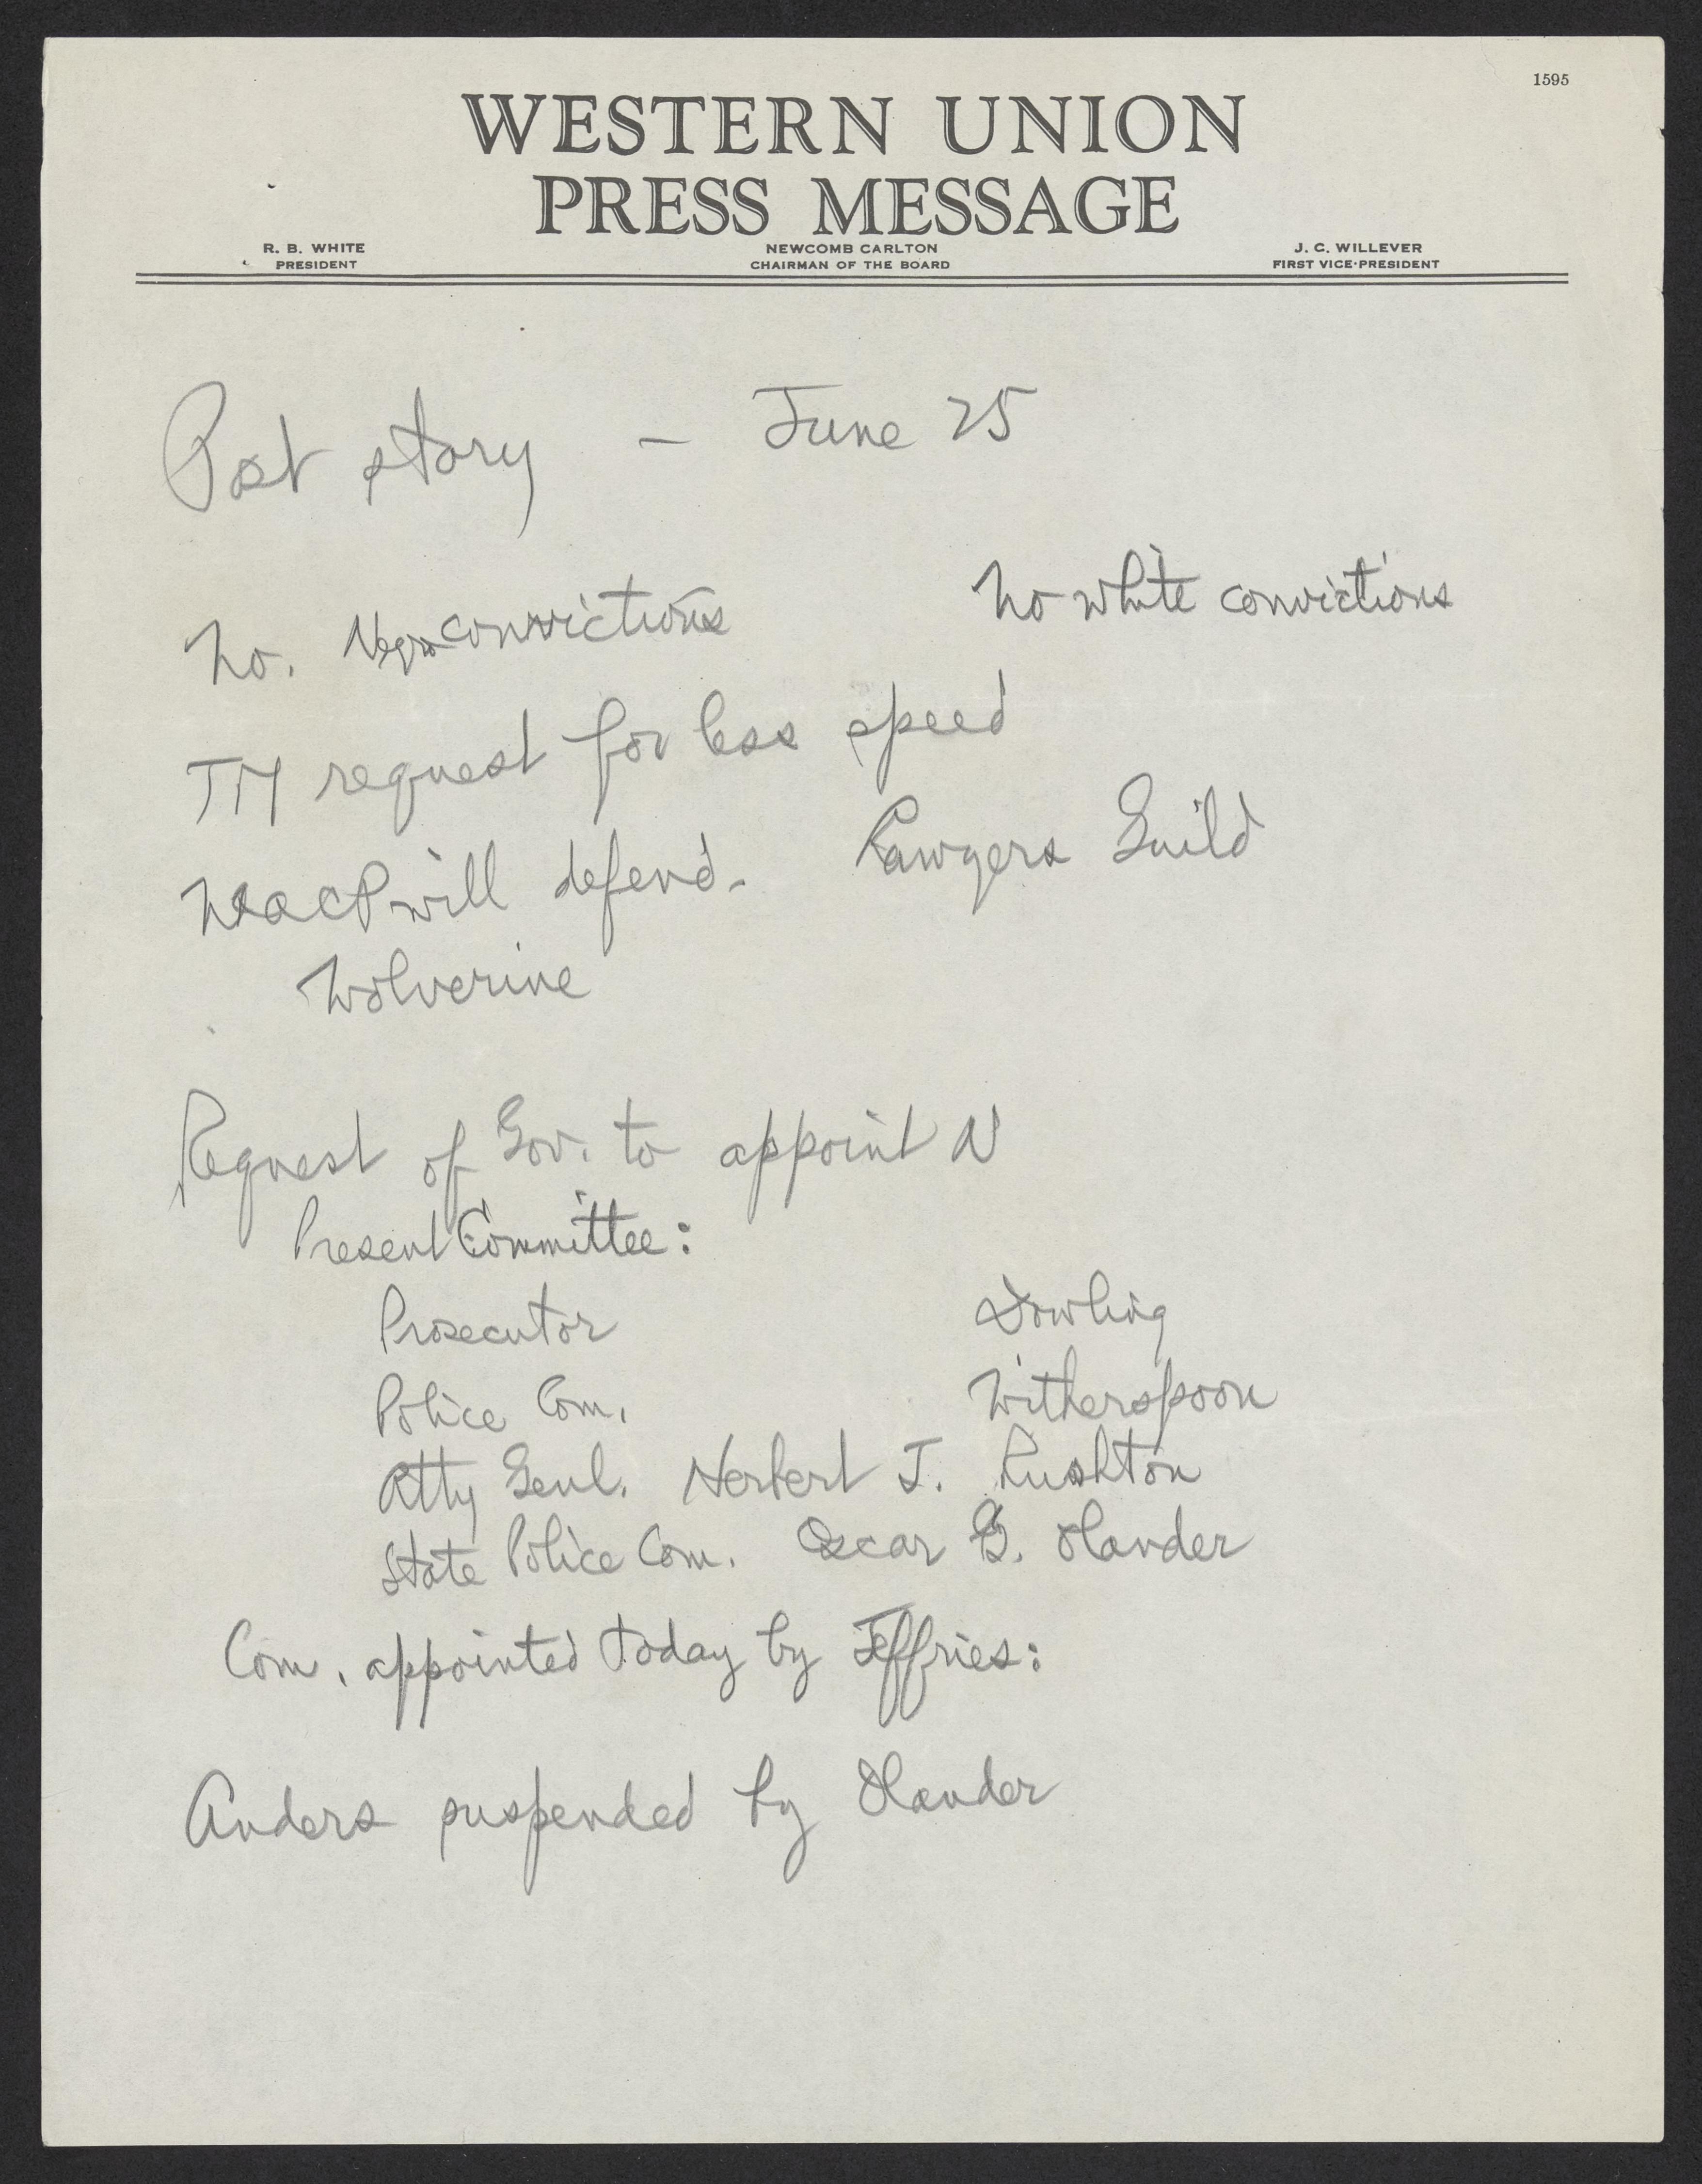 1595
WESTERN UNION
PRESS MESSAGE
R. B. WHITE
PRESIDENT
NEWCOMB CARLTON
CHAIRMAN OF THE BOARD
J. C. WILLEVER
FIRST VICE-PRESIDENT
Post story – June 25
No. Negro convictions No white convictions
TM request for less speed
NAACP will defend. Lawyers Guild
Wolverine
Request of Gov. to appoint N
Present Committee:
Prosecutor Dowling
Police Com. Witherspoon
Atty Genl. Herbert J. Rushton
State Police Com. Oscar G. Olander
Com. appointed today by Jeffries:
Anders suspended by Olander